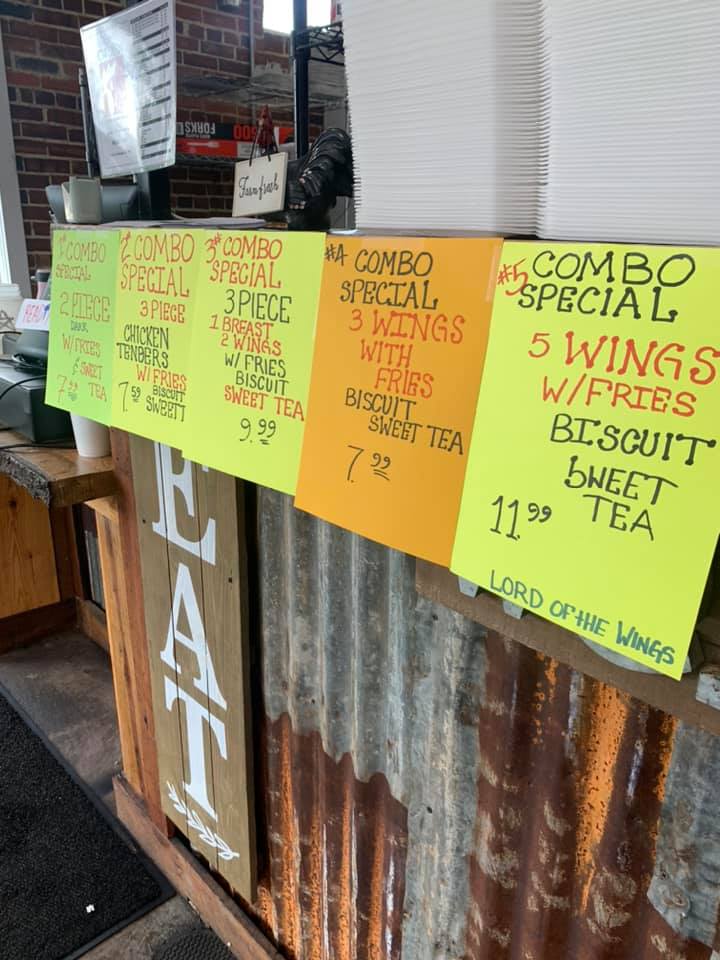 FORKS 600
Farm fresh
READ
1# COMBO
SPECIAL
2 PIECE
DARK
W/FRIES
& SWEET
TEA
7.99
2# COMBO
SPECIAL
3 PIECE
CHICKEN
TENDERS
W/ FRIES
BISCUIT
SWEET T
7.59
3# COMBO
SPECIAL
3 PIECE
1 BREAST
2 WINGS
W/ FRIES
BISCUIT
SWEET TEA
9.99
#4 COMBO
SPECIAL
3 WINGS
WITH
FRIES
BISCUIT
SWEET TEA
7.99
#5 COMBO
SPECIAL
5 WINGS
W/FRIES
BISCUIT
SWEET
TEA
11.99
LORD OF THE WINGS
EAT